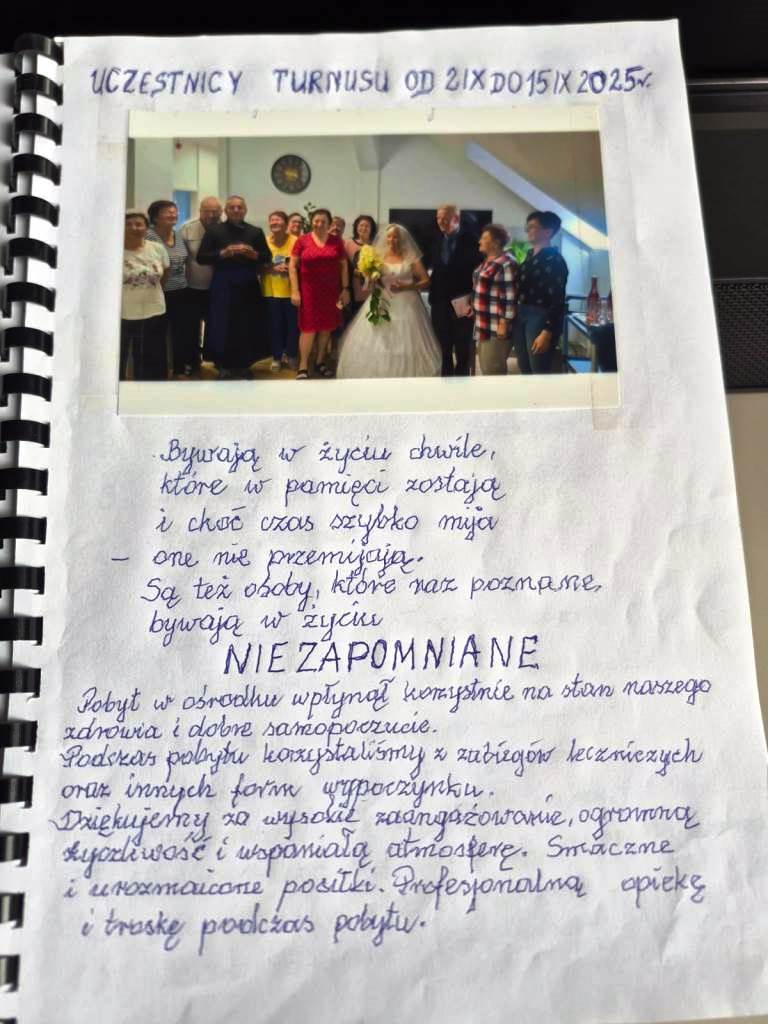 UCZĘSTNICY TURNUSU OD 2 IX DO 15 IX 2025r.
Bywają w życiu chwile,
które w pamięci zostają
i choć czas szybko mija
– one nie przemijają.
Są też osoby, które raz poznane,
bywają w życiu
NIEZAPOMNIANE
Pobyt w ośrodku wpłynął korzystnie na stan naszego
zdrowia i dobre samopoczucie.
Podczas pobytu korzystaliśmy z zabiegów leczniczych
oraz innych form wypoczynku.
Dziękujemy za wysokie zaangażowanie, ogromną
życzliwość i wspaniałą atmosferę. Smaczne
i urozmaicone posiłki. Profesjonalną opiekę
i troskę podczas pobytu.